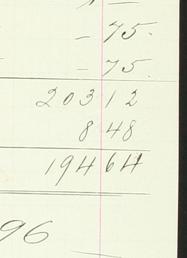 - 75.
- 75.
203 12
8 48
194 64
96